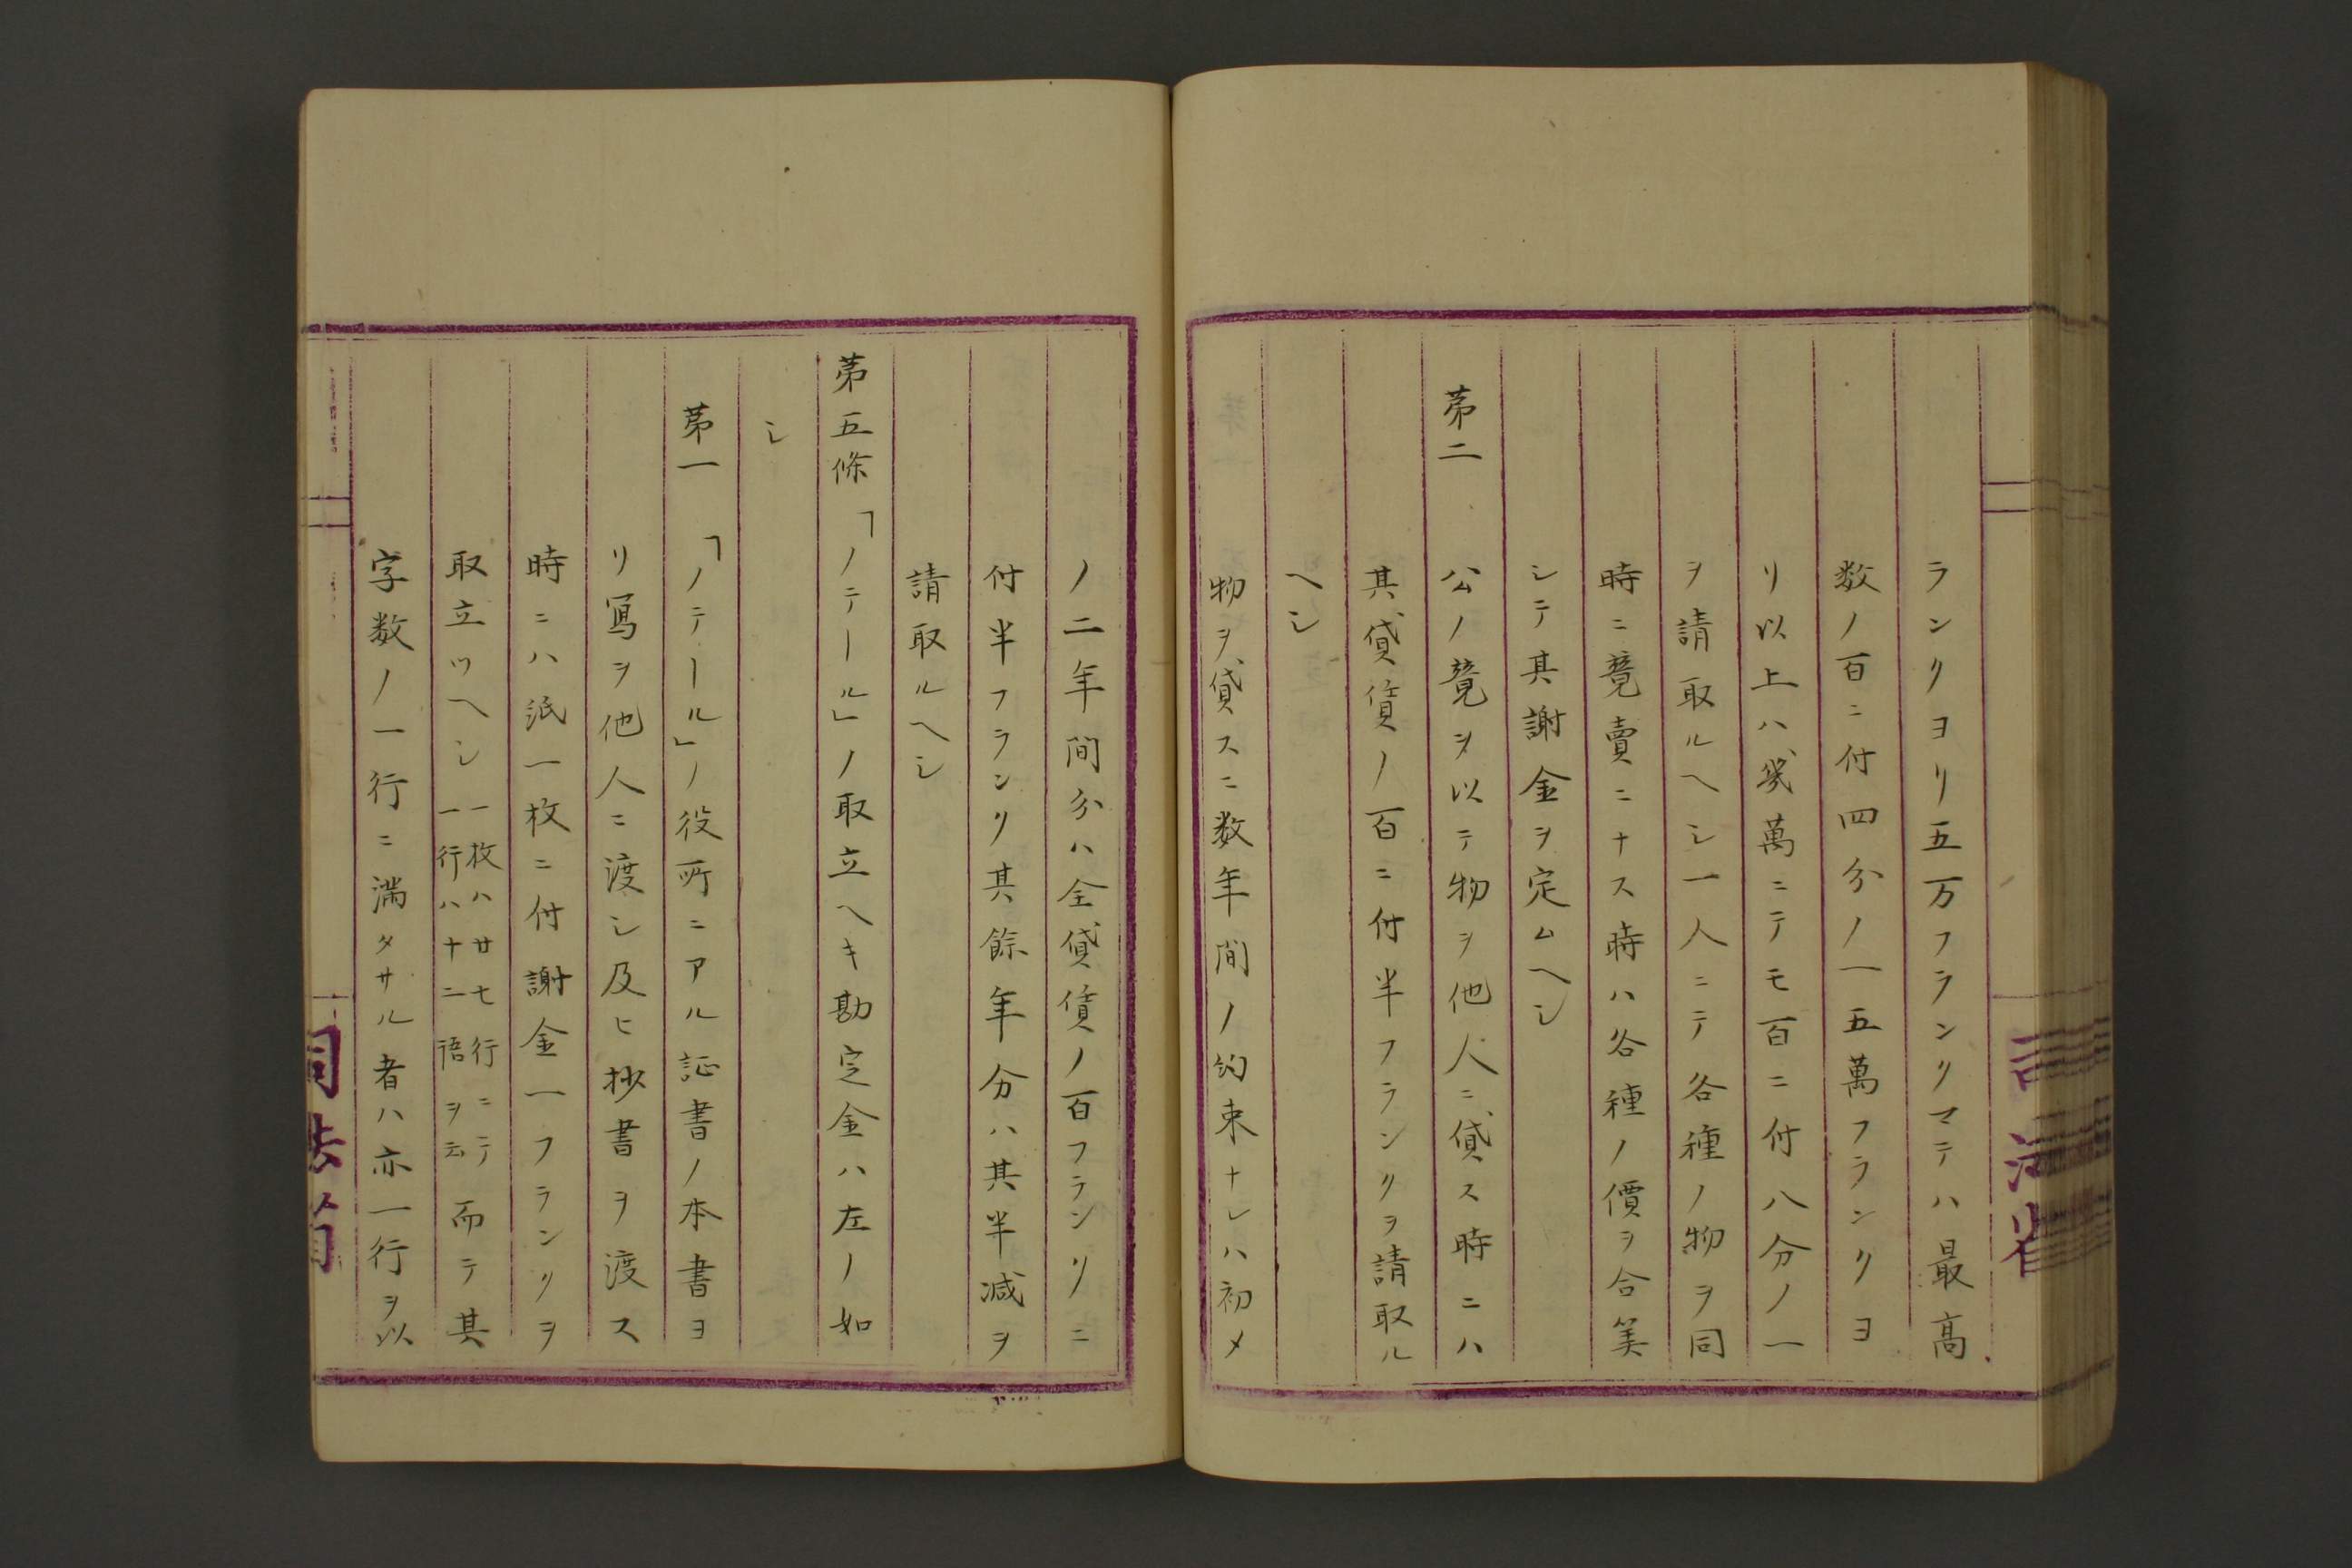 ランクヨリ五万フランクマテハ最高
数ノ百ニ付四分ノ一五萬フランクヨ
リ以上ハ幾萬ニテモ百ニ付八分ノ一
ヲ請取ルヘシ一人ニテ各種ノ物ヲ同
時ニ競賣ニナス時ハ各種ノ價ヲ合筭
シテ其謝金ヲ定ムヘシ
第二 公ノ競ヲ以テ物ヲ他人ニ貸ス時ニハ
其貸賃ノ百ニ付半フランクヲ請取ル
ヘシ
物ヲ貸スニ数年間ノ約束ナレハ初メ
ノ二年間分ハ全貸賃ノ百フランクニ
付半フランク其餘年分ハ其半減ヲ
請取ルヘシ
第五條 「ノテール」ノ取立ヘキ勘定金ハ左ノ如
シ
第一 「ノテール」ノ役所ニアル証書ノ本書ヨ
リ寫ヲ他人ニ渡シ及ヒ抄書ヲ渡ス
時ニハ紙一枚ニ付謝金一フランクヲ
取立ツヘシ一枚ハ廿七行ニテ一行ハ十二語ヲ云而テ其
字数ノ一行ニ満タサル者ハ亦一行ヲ以
司法省